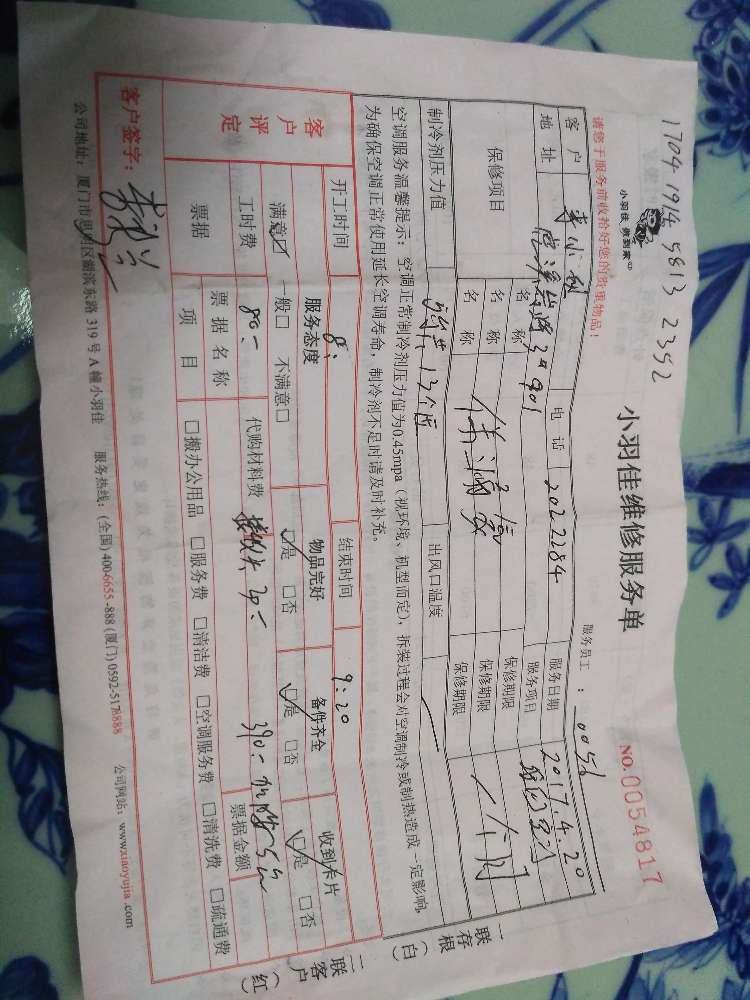 1704 1914 5813 2352
小羽佳 做到家
小羽佳维修服务单
服务员工：0056
NO:0054817
请您于服务前收拾好您的贵重物品！
客户
电话 2022184
服务日期 2017.4.20
地址
3# 901
服务项目
保修项目
名称
保修期限
名称
保修期限
名称
保修期限
一个月
制冷剂压力值
出风口温度
空调服务温馨提示：空调正常制冷剂压力值为0.45mpa（视环境、机型而定），拆装过程会对空调制冷或制热造成一定影响，
为确保空调正常使用延长空调寿命，制冷剂不足时请及时补充。
开工时间 8:
结束时间 9:20
客户评定
服务态度
物品完好
备件齐全
收到卡片
满意☑ 一般□ 不满意□
☑是 □否
☑是 □否
☑是 □否
工时费 80.-
代购材料费
票据
票据名称
票据金额
项目
□搬办公用品 □服务费 □清洁费 □空调服务费 □清洗费 □疏通费
客户签字：
公司地址：厦门市思明区湖滨东路 319 号 A 幢小羽佳 服务热线：(全国) 400-6655-888 (厦门) 0592-5178888 公司网站：www.xiaoyujia.com
一联存根（白）
二联客户（红）